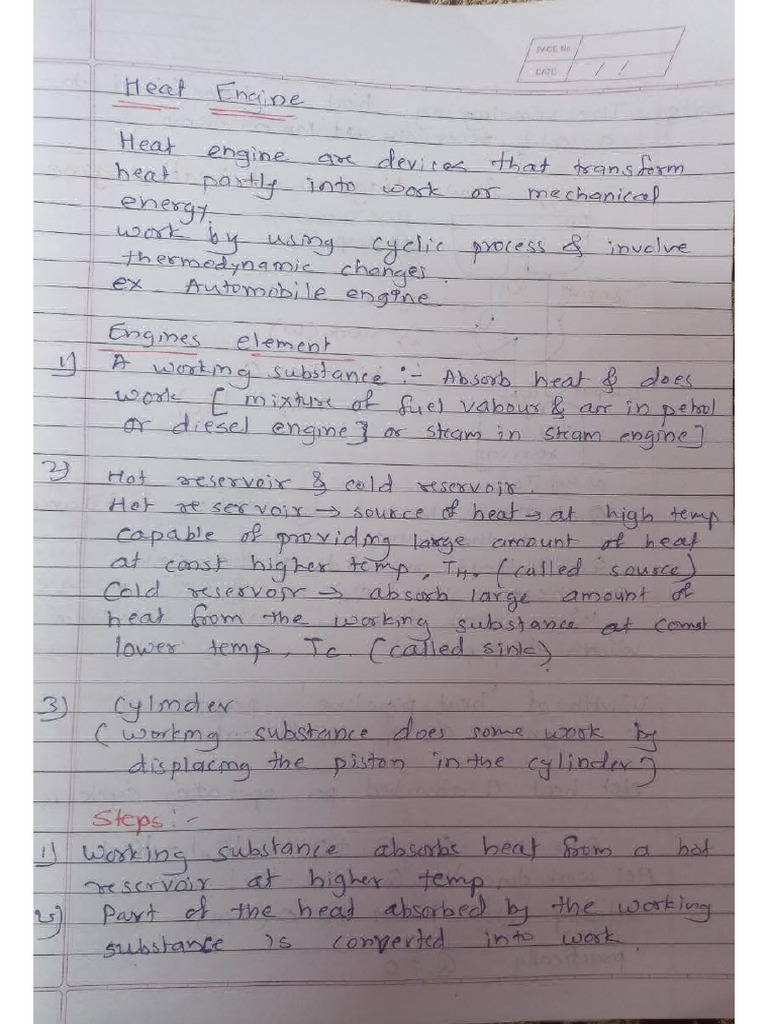 PAGE No.
DATE / /
Heat Engine
Heat engine are devices that transform
heat partly into work or mechanical
energy.
work by using cyclic process & involve
thermodynamic changes.
ex Automobile engine
Engines element
1) A working substance :- Absorb heat & does
work [ mixture of fuel vabour & air in petrol
or diesel engine} or steam in steam engine]
2) Hot reservoir & cold reservoir.
Hot reservoir → source of heat → at high temp
capable of providing large amount of heat
at const higher temp, TH. (called source)
Cold reservoir → absorb large amount of
heat from the working substance at const
lower temp, Tc. (called sink)
3) Cylinder
( working substance does some work by
displacing the piston in the cylinder]
Steps :-
1) Working substance absorbs heat from a hot
reservoir at higher temp
2) Part of the heat absorbed by the working
substance is converted into work.